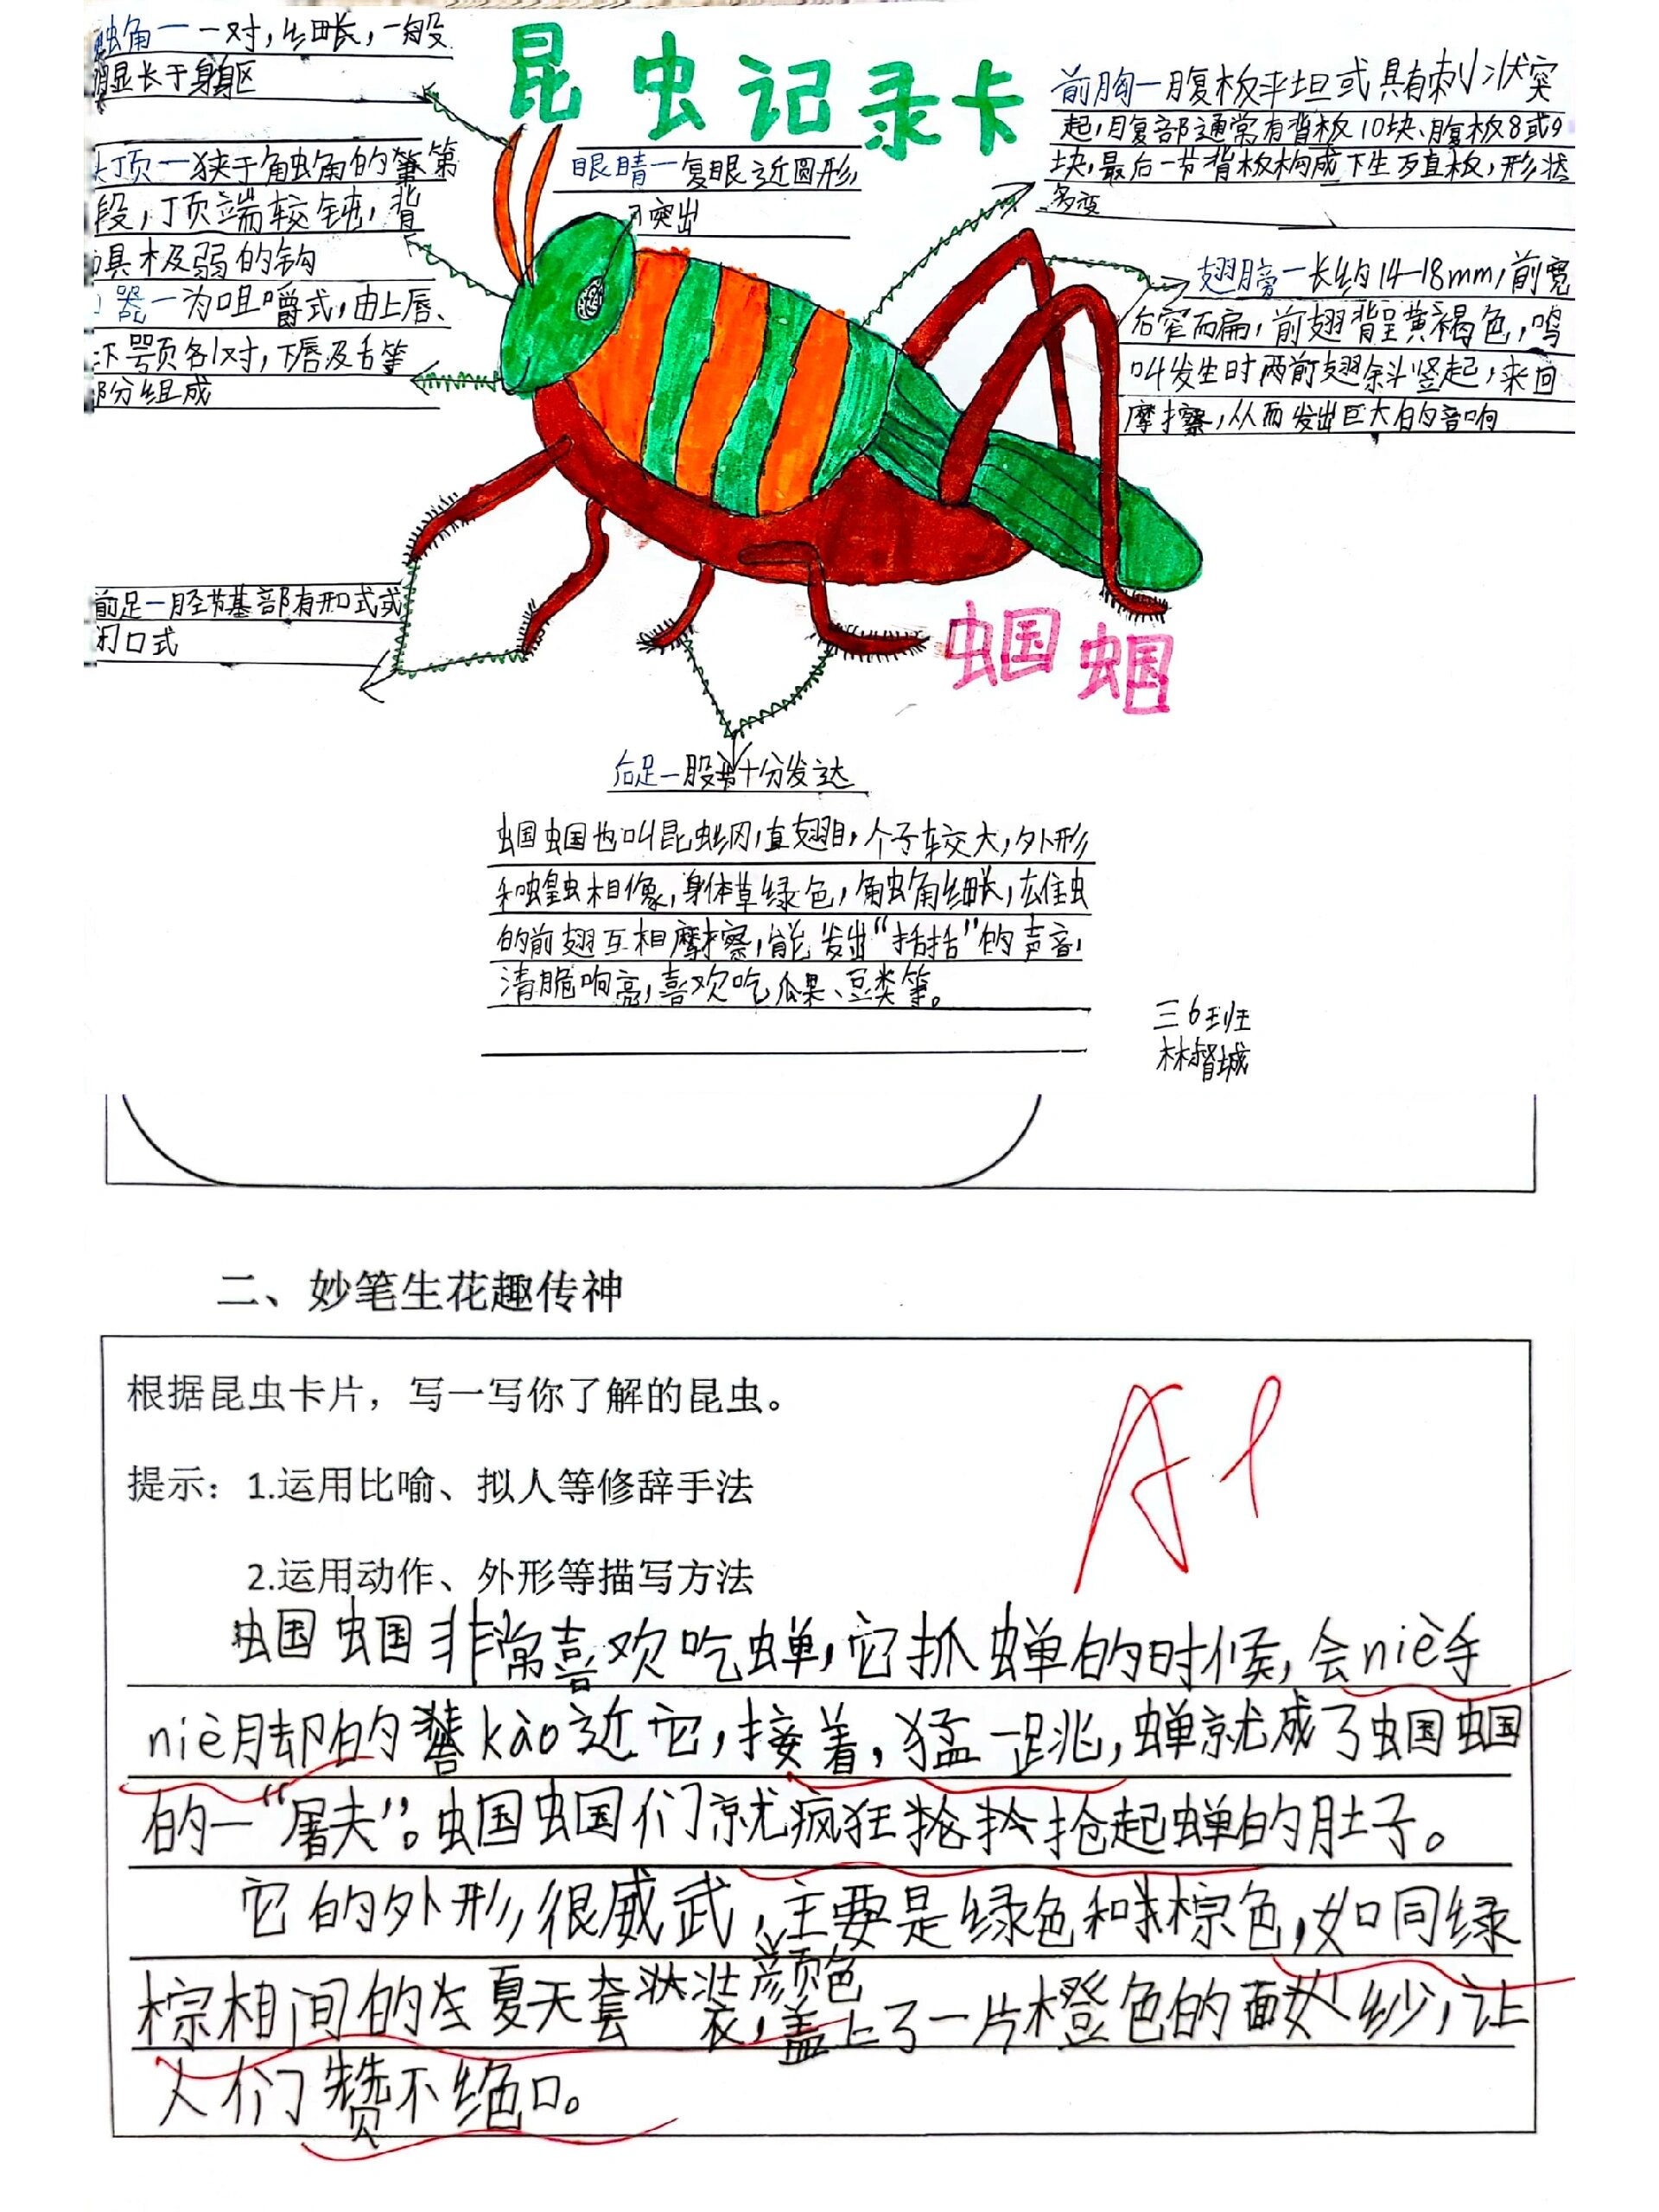 昆虫记录卡
触角一一对,细长,一般
明显长于身区
头顶一狭于触角的第
段,顶端较钝,背
具极弱的钩
器一为咀嚼式,由上唇、
下颚各1对,下唇及舌等
部分组成
眼睛一复眼近圆形
突出
前胸一腹板平坦或具有刺状突
起,腹部通常有背板10块、腹板8或9
块,最后一节背板构成下生殖板,形状
多变
翅膀一长约14-18mm,前宽
后窄而扁,前翅背呈黄褐色,鸣
叫发生时两前翅斜竖起,来回
摩擦,从而发出巨大的音响
前足一胫节基部有开口式或
闭口式
蝈蝈
后足一股节十分发达
蝈蝈也叫昆虫纲,直翅目,个子较大,外形
和蝗虫相像,身体草绿色,触角细长,雄虫
的前翅互相摩擦,能发出“括括”的声音,
清脆响亮,喜欢吃瓜果、豆类等。
三6班
林智城
二、妙笔生花趣传神
根据昆虫卡片，写一写你了解的昆虫。
提示：1.运用比喻、拟人等修辞手法
2.运用动作、外形等描写方法
A+
蝈蝈非常喜欢吃蝉,它抓蝉的时候,会niè手
niè脚的kào近它,接着,猛一跳,蝉就成了蝈蝈
的一“屠夫”。蝈蝈们就疯狂抢起蝉的肚子。
它的外形很威武,主要颜色是绿色和棕色,如同绿
棕相间的夏天套装衣,盖上了一片橙色的面纱,让
人们赞不绝口。